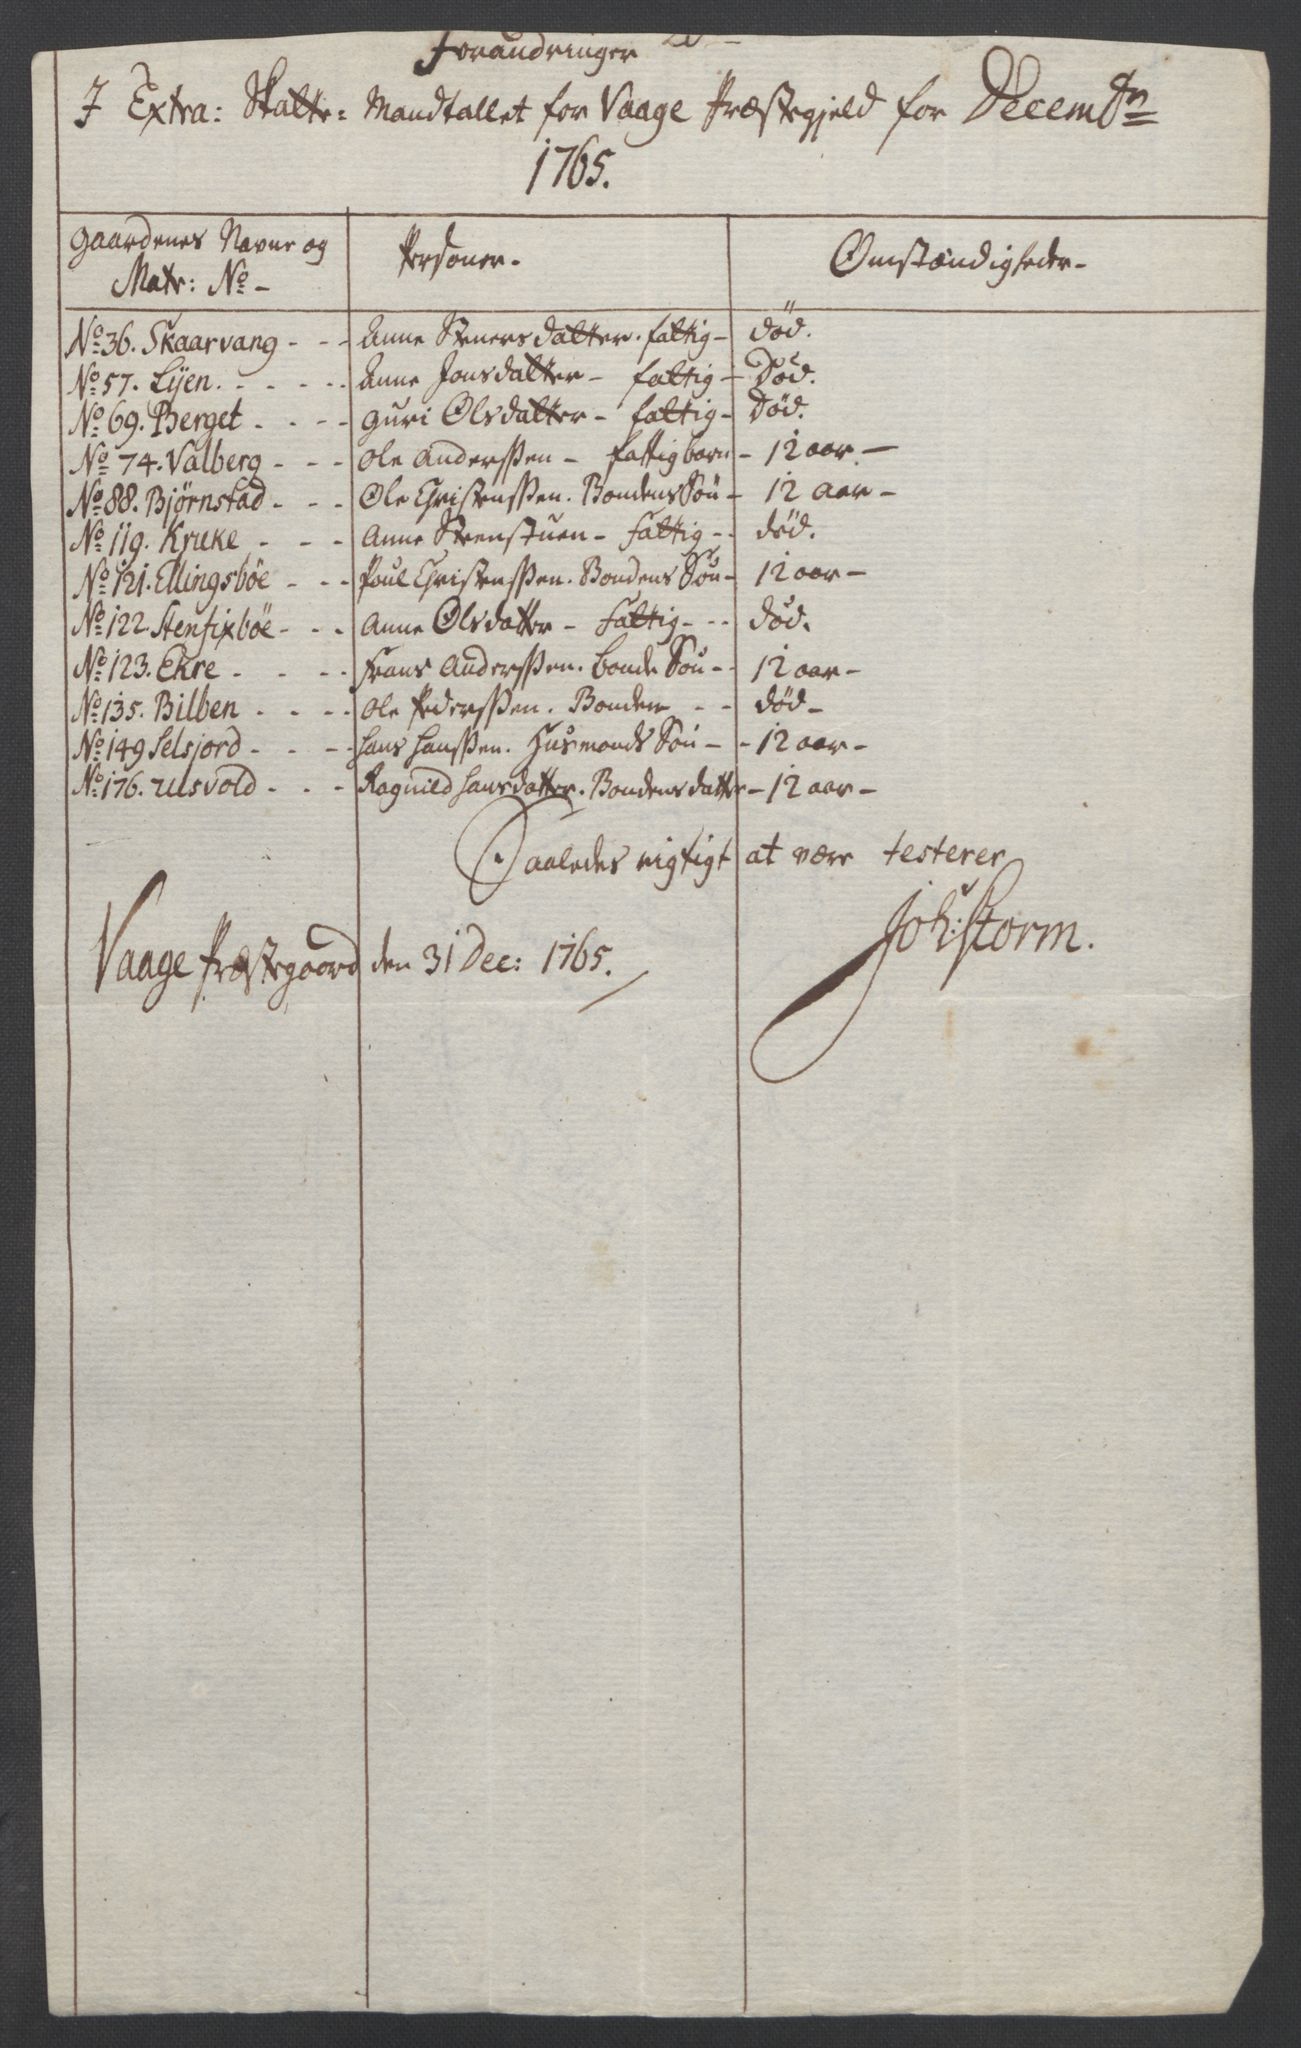 Forandringer
I Extra: Skatte: Mandtallet for Vaage Præstegjeld for Decembr
1765.
Gaardenes Navne og Matr: No - Personer. Omstændigheder-
No 36. Skaarvang - - - Anne Stenersdatter. fattig - død.
No 57. Lijen. - - - - - Anne Jonsdatter - fattig - Død.
No 69. Berget - - - - Guri Olsdatter - fattig - Død.
No 74. Valberg - - - Ole Anderssen - fattig barn - 12 aar. -
No 88. Bjørnstad - - - Ole Christenssen. Bondens Søn - 12 aar -
No 119. Kruke - - - Anne Steenstuen - fattig - - død.
No 121. Ellingsbøe - - - Poul Christenssen. Bondens Søn - 12 aar -
No 122. Stenfixbøe - - - Anne Olsdatter - Fattig - - - død.
No 123. Ekre - - - - Frans Anderssen. bonde Søn - - 12 aar -
No 135. Bilben - - - - Ole Pederssen. Bonden - - død -
No 149 Selsjord - - - - Hans Hanssen. Husmands Søn - - 12 aar -
No 176. Usvold - - - Ragnild Hansdatter. Bondens datter - 12 aar -
Saaledes rigtigt at være testerer
Vaage Præstegaard den 31 Dec: 1765.
Joh: Storm.